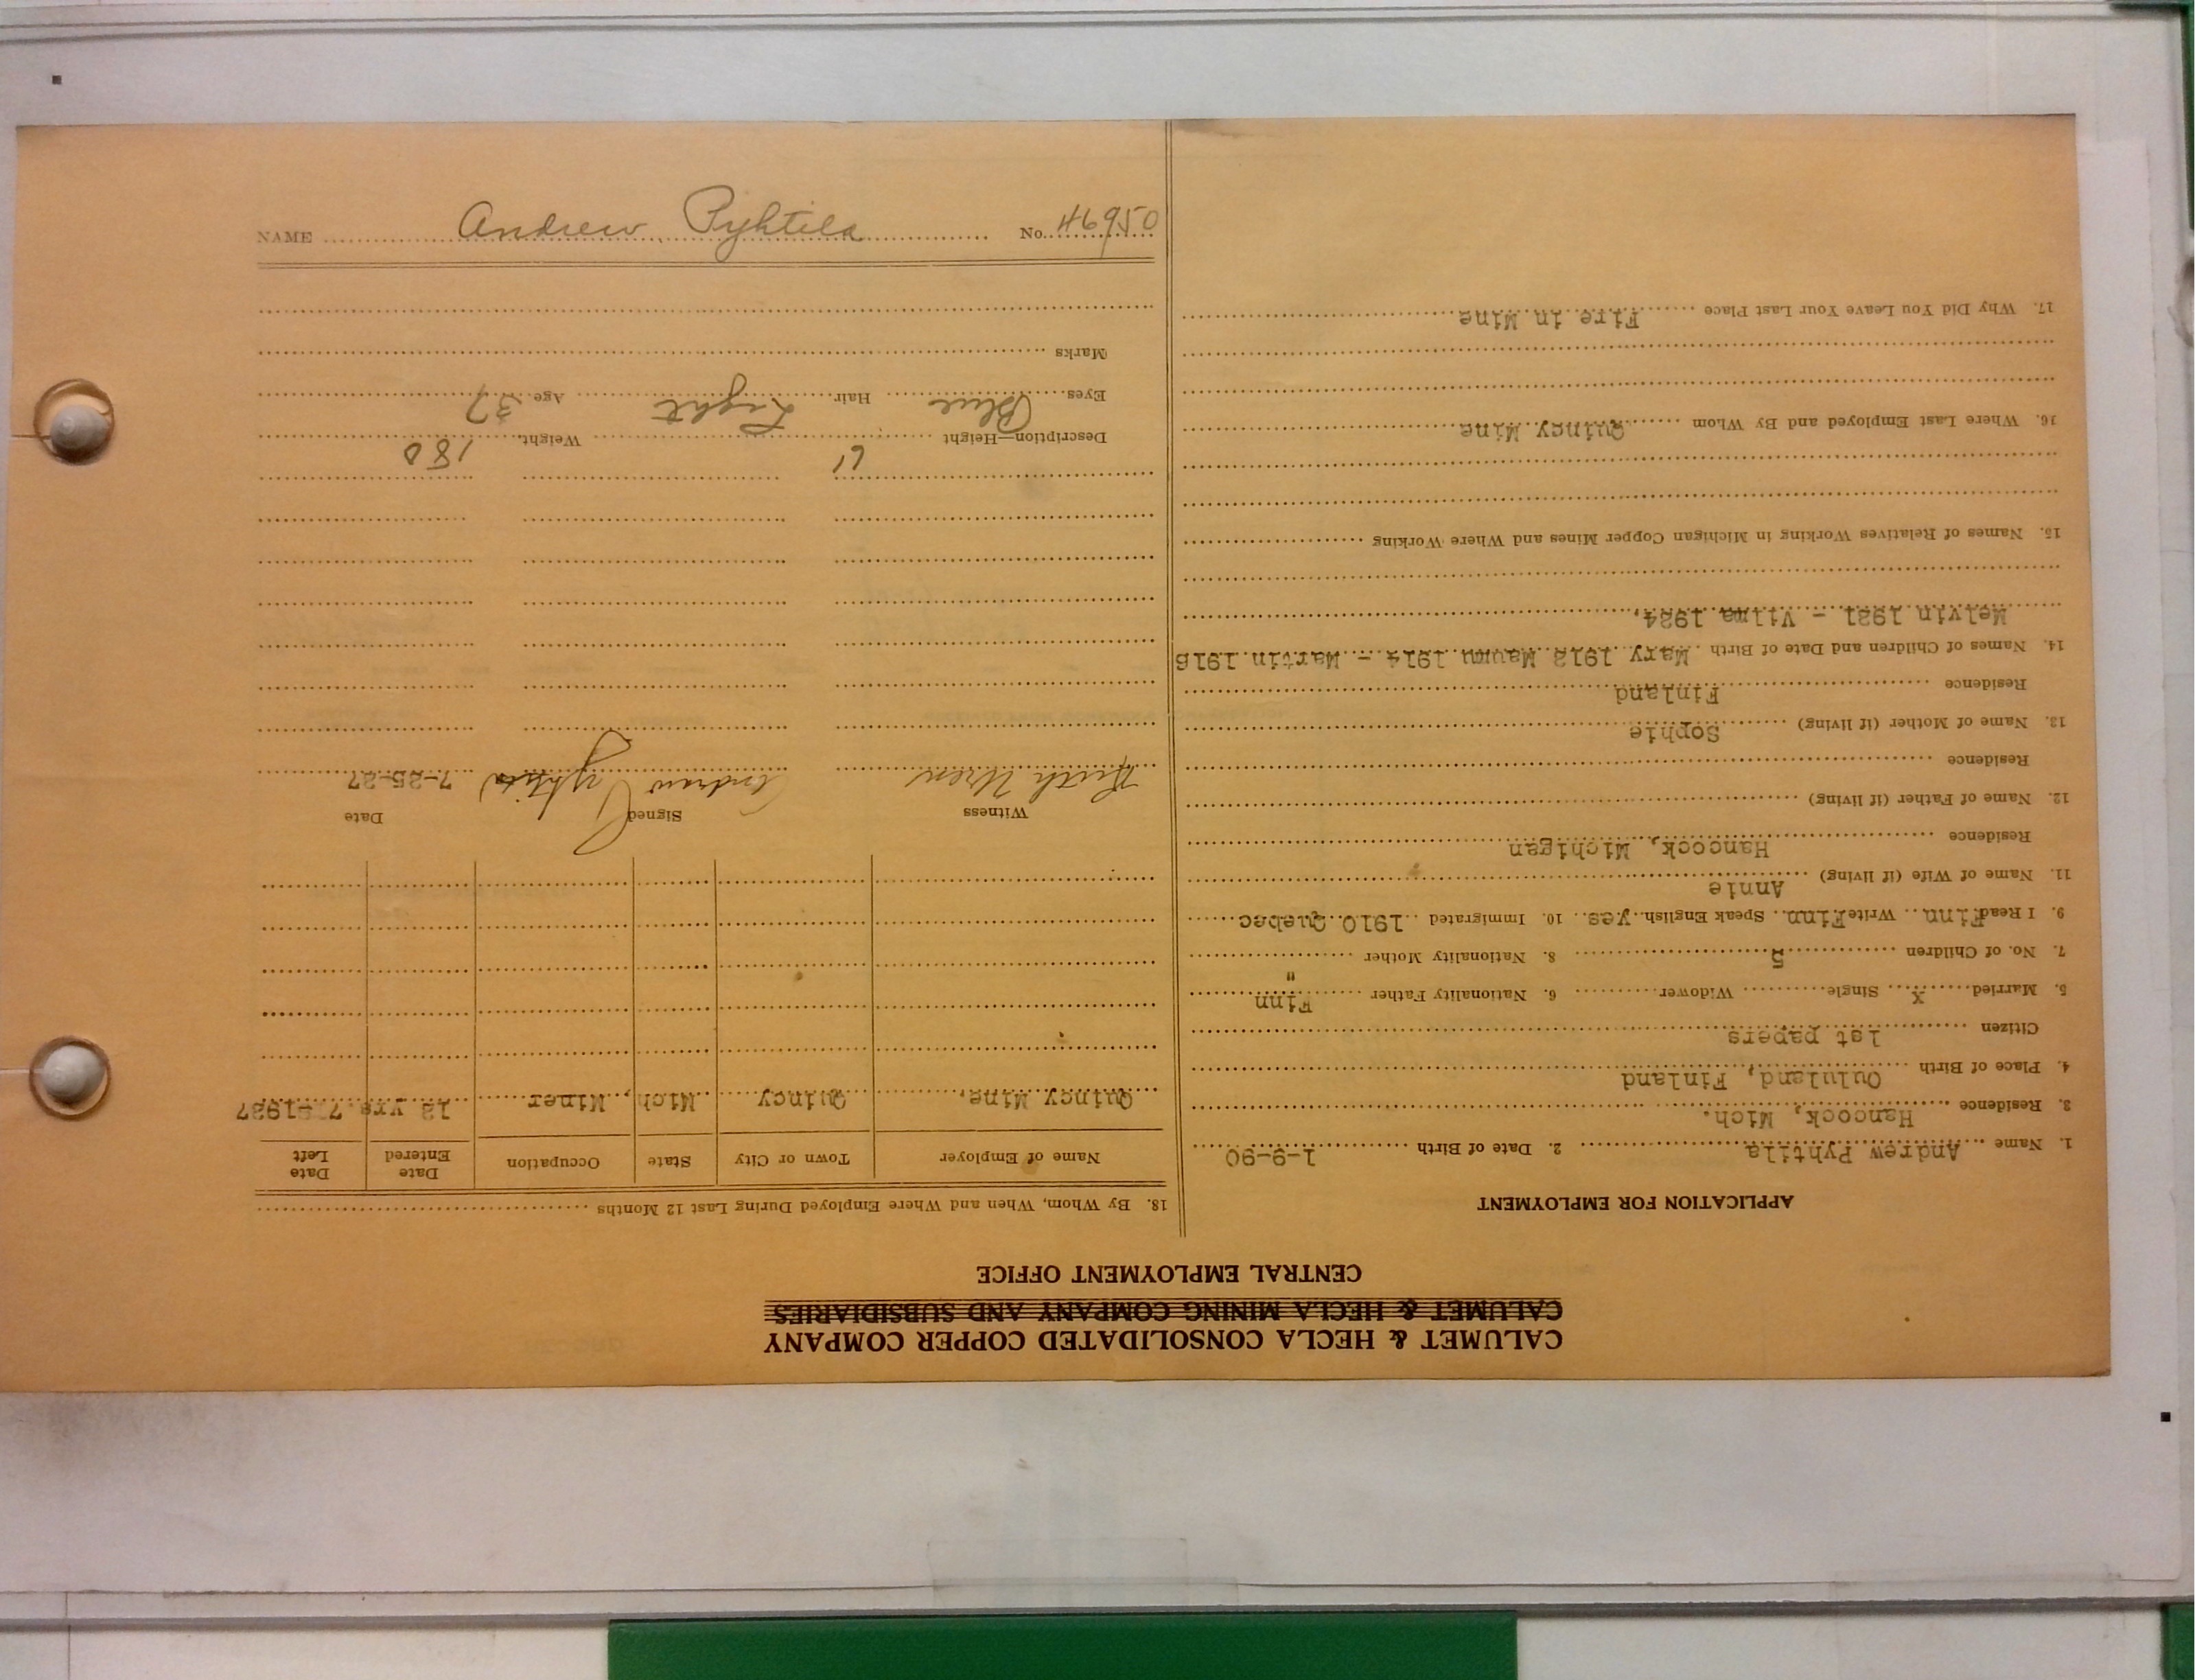 CALUMET & HECLA CONSOLIDATED COPPER COMPANY
CALUMET & HECLA MINING COMPANY AND SUBSIDIARIES
CENTRAL EMPLOYMENT OFFICE
APPLICATION FOR EMPLOYMENT
1. Name Andrew Pyhtila 2. Date of Birth 1-9-90
3. Residence Hancock, Mich.
4. Place of Birth Oululand, Finland
Citizen 1st papers
5. Married X Single Widower 6. Nationality Father Finn
7. No. of Children 5 8. Nationality Mother "
9. I Read Finn Write Finn Speak English yes 10. Immigrated 1910 Quebec
11. Name of Wife (if living) Annie
Residence Hancock, Michigan
12. Name of Father (if living)
Residence
13. Name of Mother (if living) Sophie
Residence Finland
14. Names of Children and Date of Birth Mary 1912 Maumu 1914 - Martin 1916
Melvin 1921 - Vilma 1924,
15. Names of Relatives Working in Michigan Copper Mines and Where Working
16. Where Last Employed and By Whom Quincy Mine
17. Why Did You Leave Your Last Place Fire in Mine
18. By Whom, When and Where Employed During Last 12 Months
Name of Employer Town or City State Occupation Date Entered Date Left
Quincy Mine, Quincy Mich, Miner 12 yrs 7 1927
Witness Signed Date
Ruth Uren Andrew Pyhtila 7-25-27
Description—Height 6' Weight 180
Eyes Blue Hair Light Age 37
Marks
NAME Andrew Pyhtila No. 46950